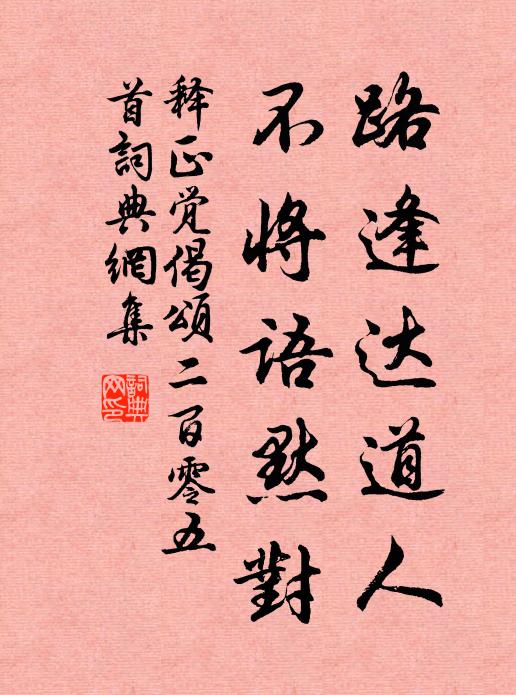 路逢达道人
不将語默對
释正觉偈頌二百零五
首詞典網集
詞典网印